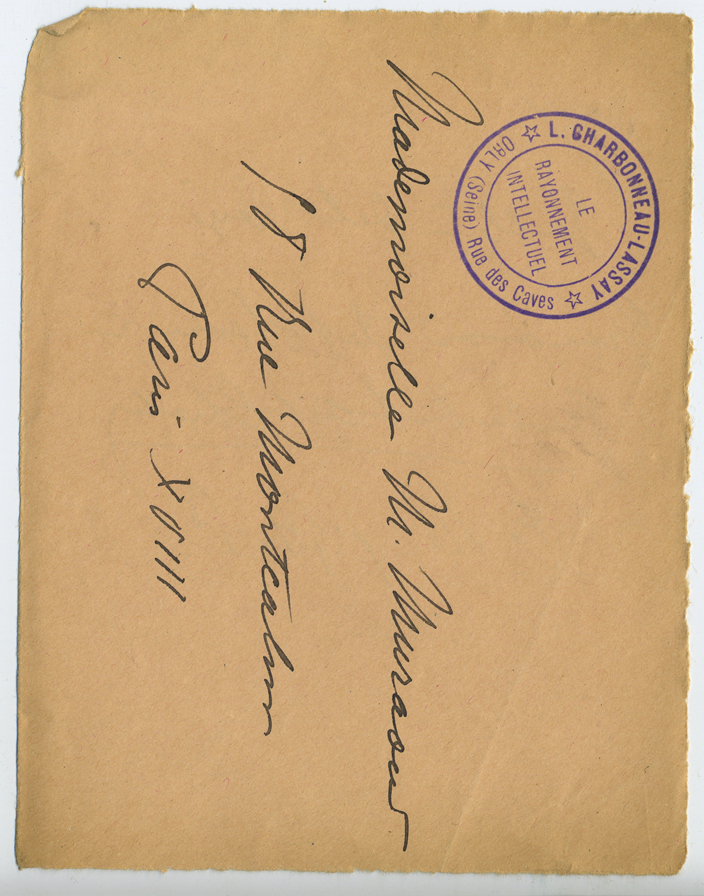 ☆ L. CHARBONNEAU-LASSAY ☆
ORLY (Seine) Rue des Caves
LE
RAYONNEMENT
INTELLECTUEL
Mademoiselle M. Muraour
58 Rue Montcalm
Paris XVIII